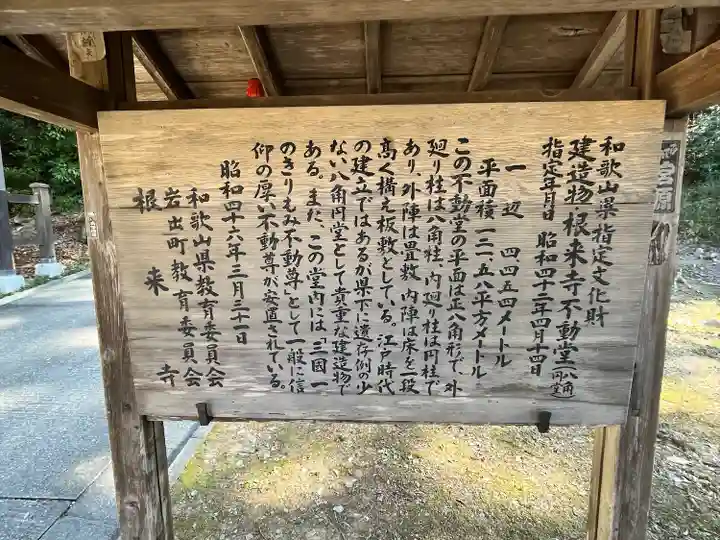 和歌山県指定文化財
建造物 根来寺不動堂(八角円堂)
指定年月日 昭和四十二年四月十四日
一辺 四四五四メートル
平面積 一三一、五八平方メートル
この不動堂の平面は正八角形で、外
廻り柱は八角柱、内廻り柱は円柱で
あり、外陣は畳敷、内陣は床を一段
高く構え板敷としている。江戸時代
の建立ではあるが県下に遺存例の少
ない八角円堂として貴重な建造物で
ある。また、この堂内には「三国一
のきりもみ不動尊」として一般に信
仰の厚い不動尊が安置されている。
昭和四十六年三月三十一日
和歌山県教育委員会
岩出町教育委員会
根来寺